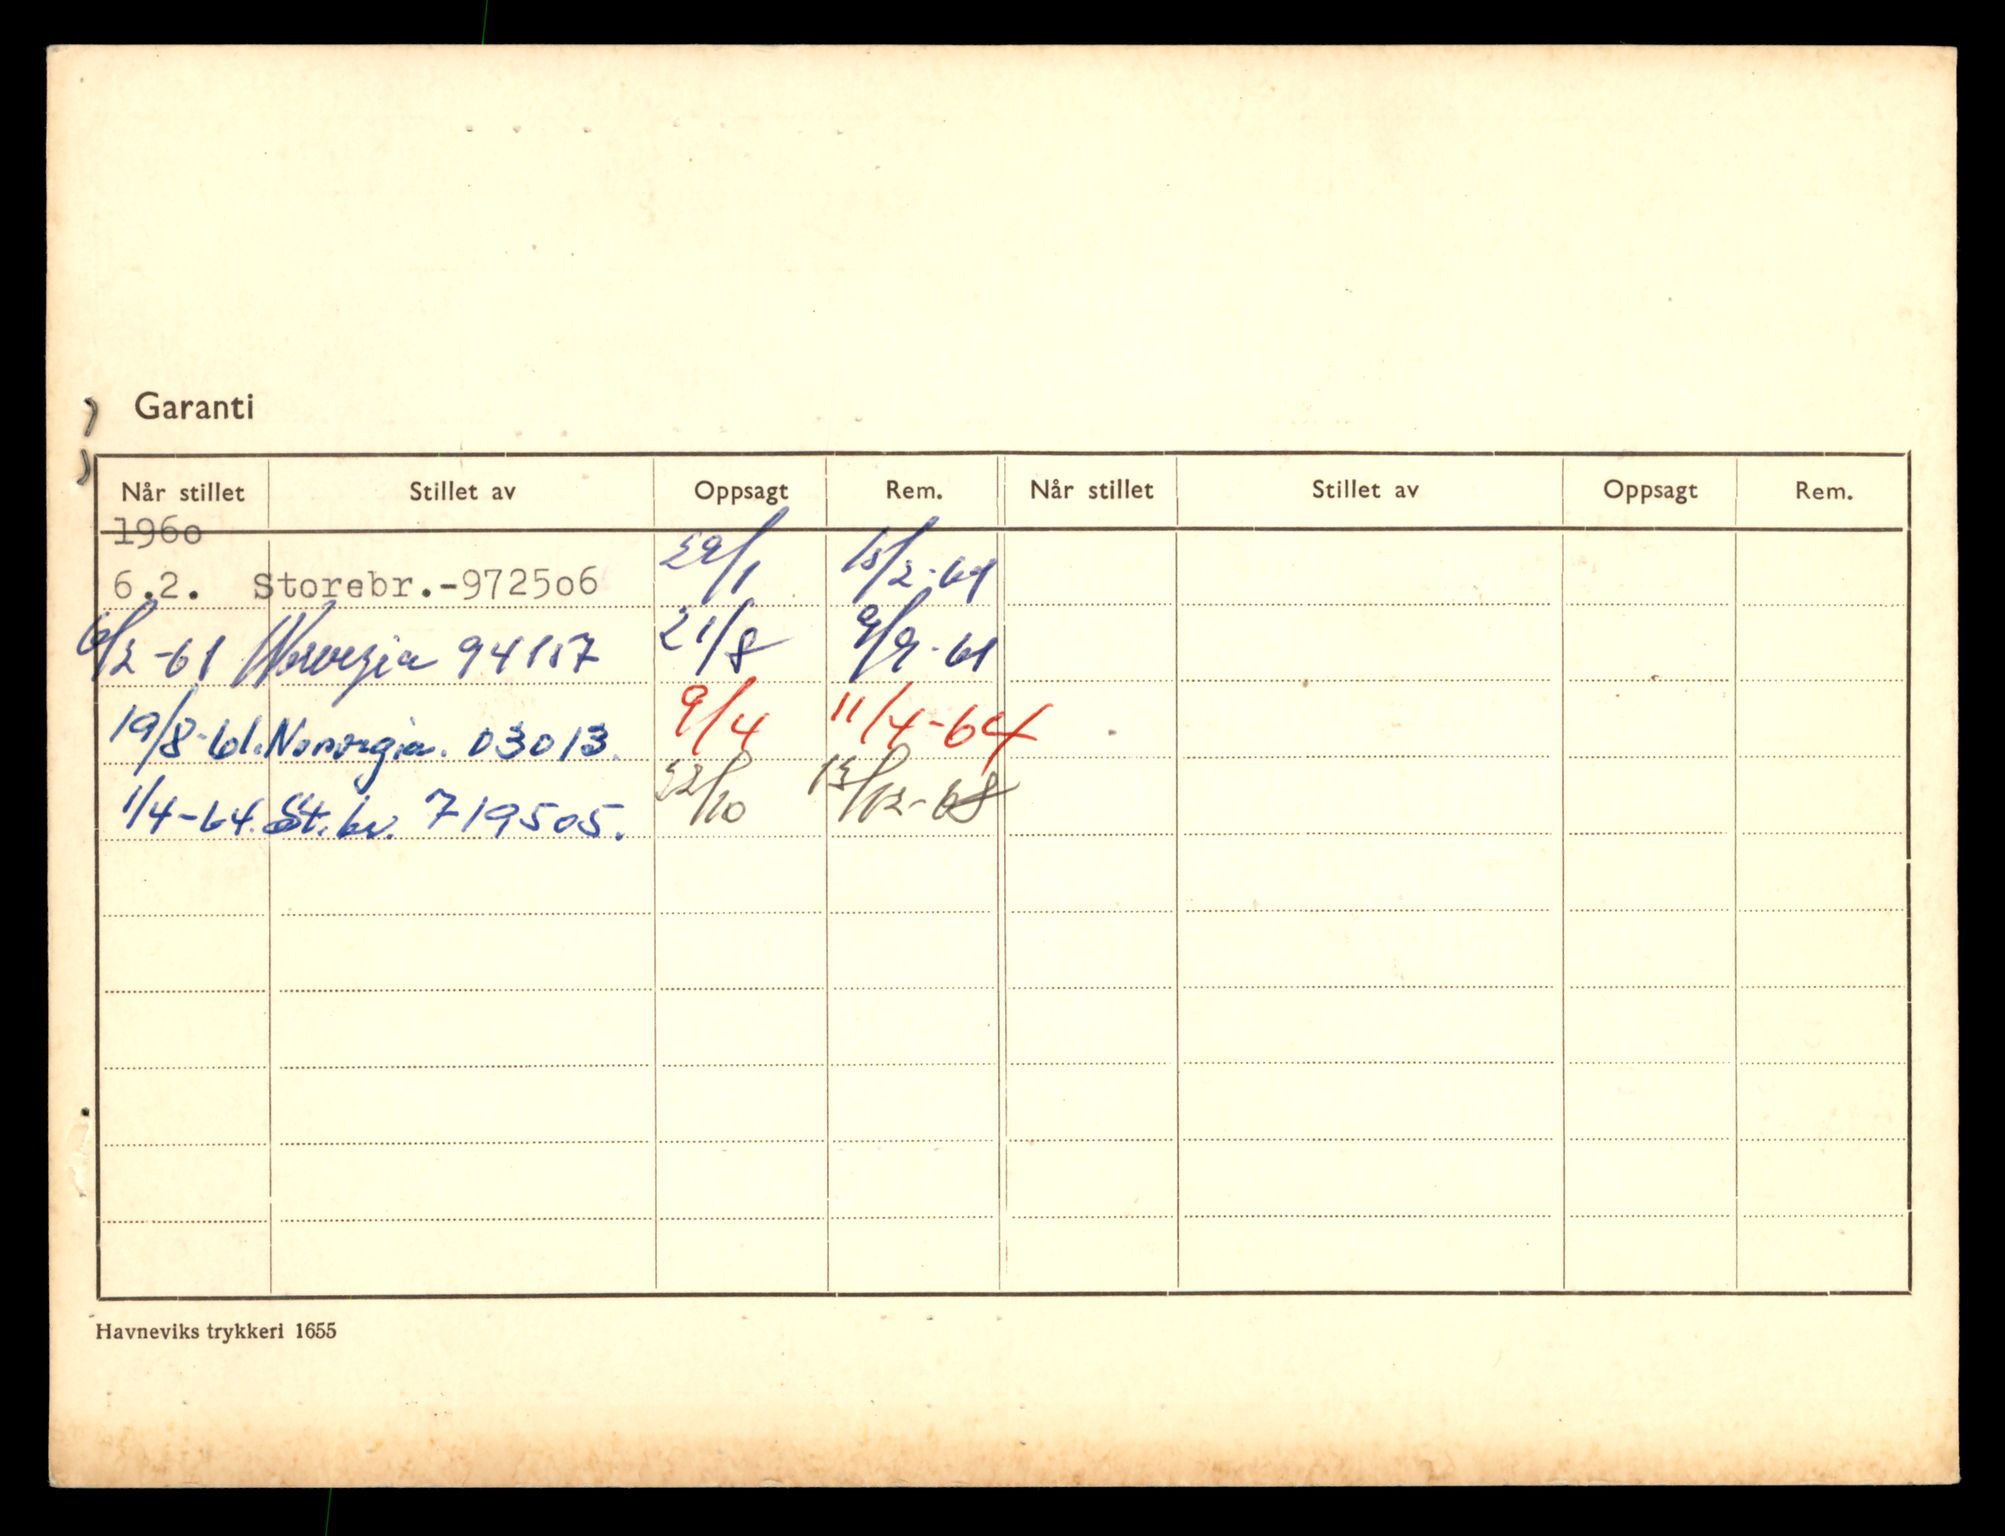 Garanti
Når stillet Stillet av Oppsagt Rem. Når stillet Stillet av Oppsagt Rem.
196o
6.2. Storebr.-9725o6 29/1 15/2-61
6/2-61 Norvegia 94157 21/8 9/9-61
19/8-61. Norvegia. 03013. 9/4 11/4-64
1/4-64. St.br. 719505. 22/10 13/12-68
Havneviks trykkeri 1655